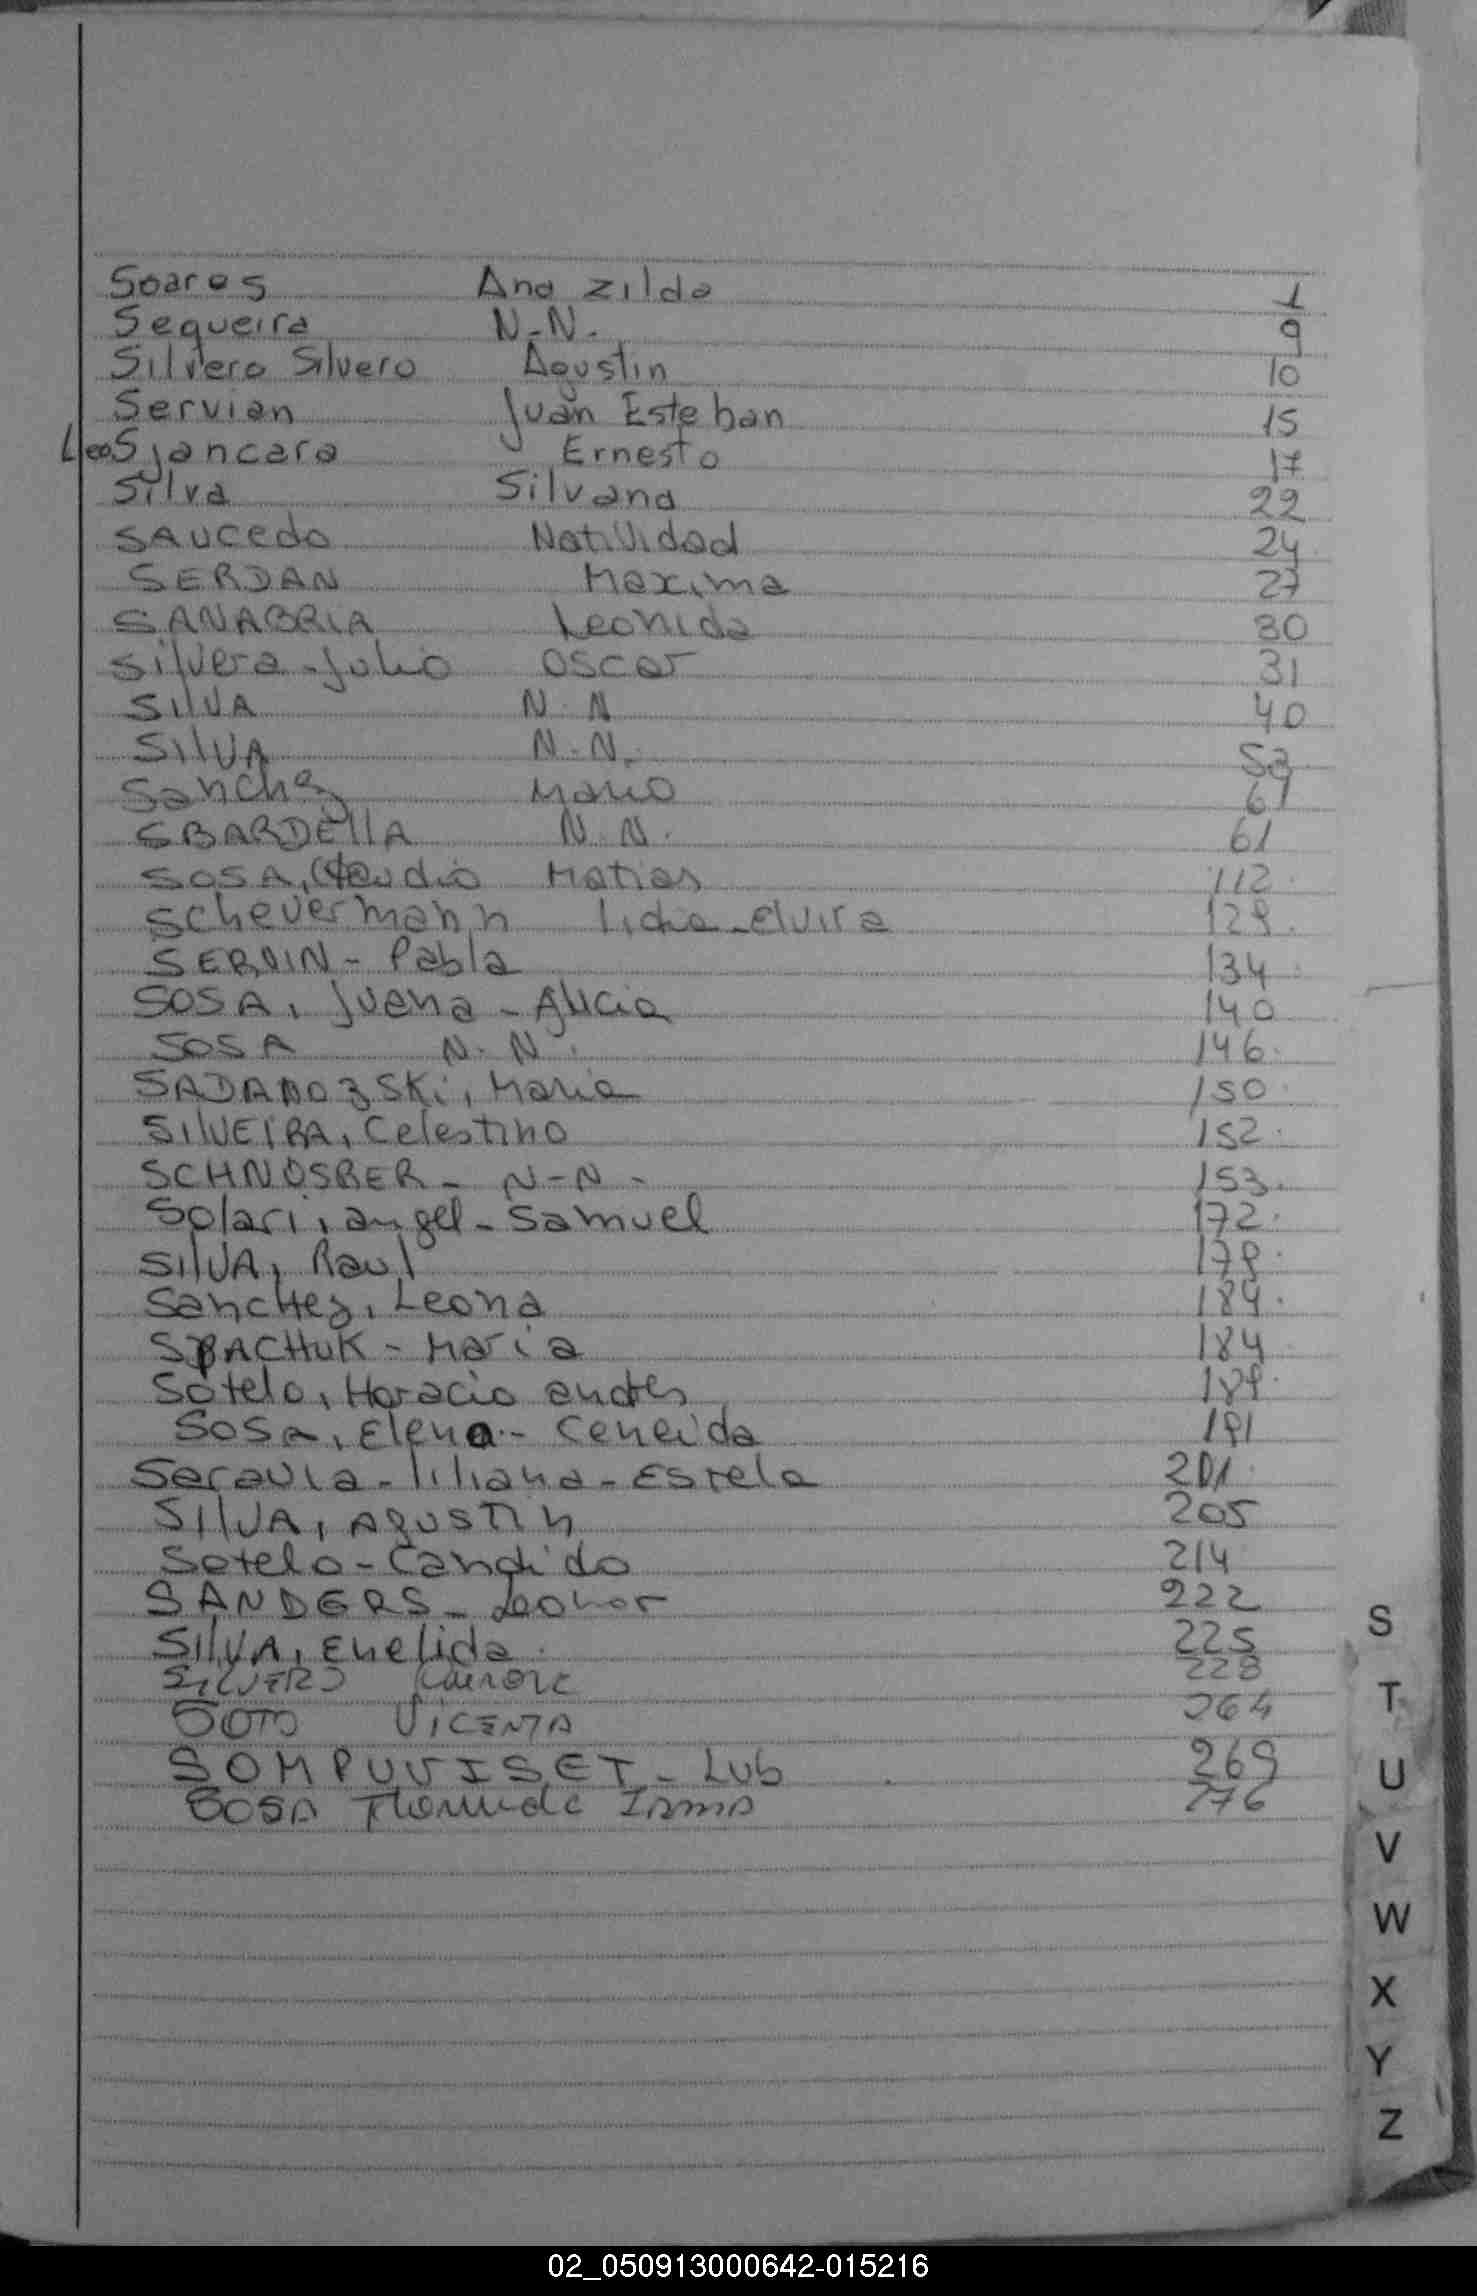 Soares Ana Zilda 1
Sequeira N-N. 9
Silvero Silvero Agustin 10
Servian Juan Esteban 15
Leo Sjancara Ernesto 17
Silva Silvana 22
SAUCedo Natividad 24
SERDAN Maxima 27
SANABRIA Leonida 30
Silvera-Julio Oscar 31
SilVA N.N 40
SilVA N.N.
Sanchez Mario 61
SBARDEllA N.N. 61
SOSA, Claudio Matias 112.
Schevermann lidia-Elvira 129.
SERVIN - Pabla 134.
SOSA, Juana - Alicia 140
SOSA N. N. 146.
Maria 150.
SilVEIRA, Celestino 152.
SCHNOSBER - N-N - 153.
Solari, angel - Samuel 172.
SilVA, Raul 179.
Sanchez, Leona 184.
SPACHUK - Maria 184.
Sotelo, Horacio andres 189.
Sosa, Elena - Ceneida 191
Saravia - liliana - Estela 201.
SilVA, Agustin 205
Sotelo - Candido 214
SANDERS - Leonor 222
SilVA, Enelida. 225
SILVERO 228
SOTO VICENTA 264
SOMPUVISET - Lub 269
SOSA IRMA 276
S
T
U
V
W
X
Y
Z
02_050913000642-015216